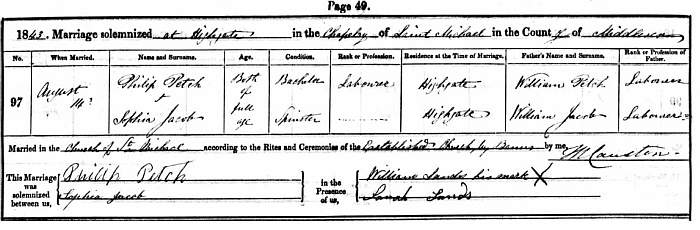 Page 49.
1843. Marriage solemnized at Highgate in the Chapelry of Saint Michael in the County of Middlesex
No. When Married. Name and Surname. Age. Condition. Rank or Profession. Residence at the Time of Marriage. Father's Name and Surname. Rank or Profession of Father.
97 August 14th Philip Petch & Sophia Jacob Both of full age Bachelor Spinster Labourer Highgate Highgate William Petch William Jacob Labourer Labourer
Married in the Church of St. Michael according to the Rites and Ceremonies of the Established Church, by Banns by me, Causton
This Marriage was solemnized between us, Philip Petch Sophia Jacob in the Presence of us, William Sands his mark X Sarah Sands